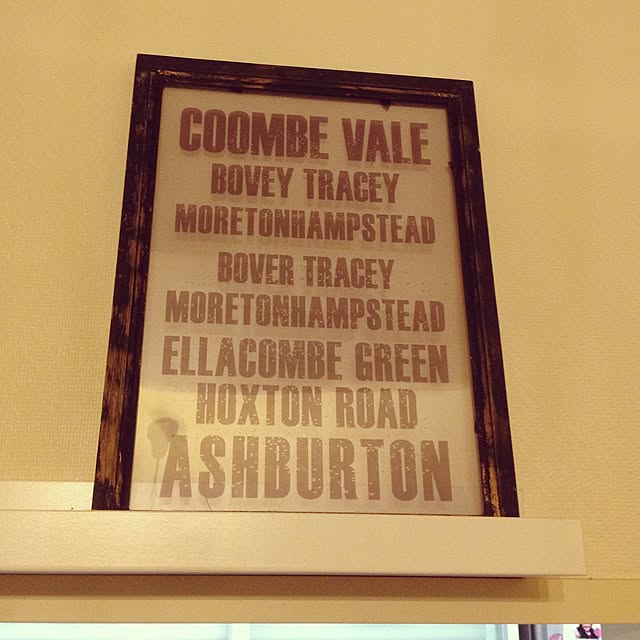 COOMBE VALE
BOVEY TRACEY
MORETONHAMPSTEAD
BOVER TRACEY
MORETONHAMPSTEAD
ELLACOMBE GREEN
HOXTON ROAD
ASHBURTON